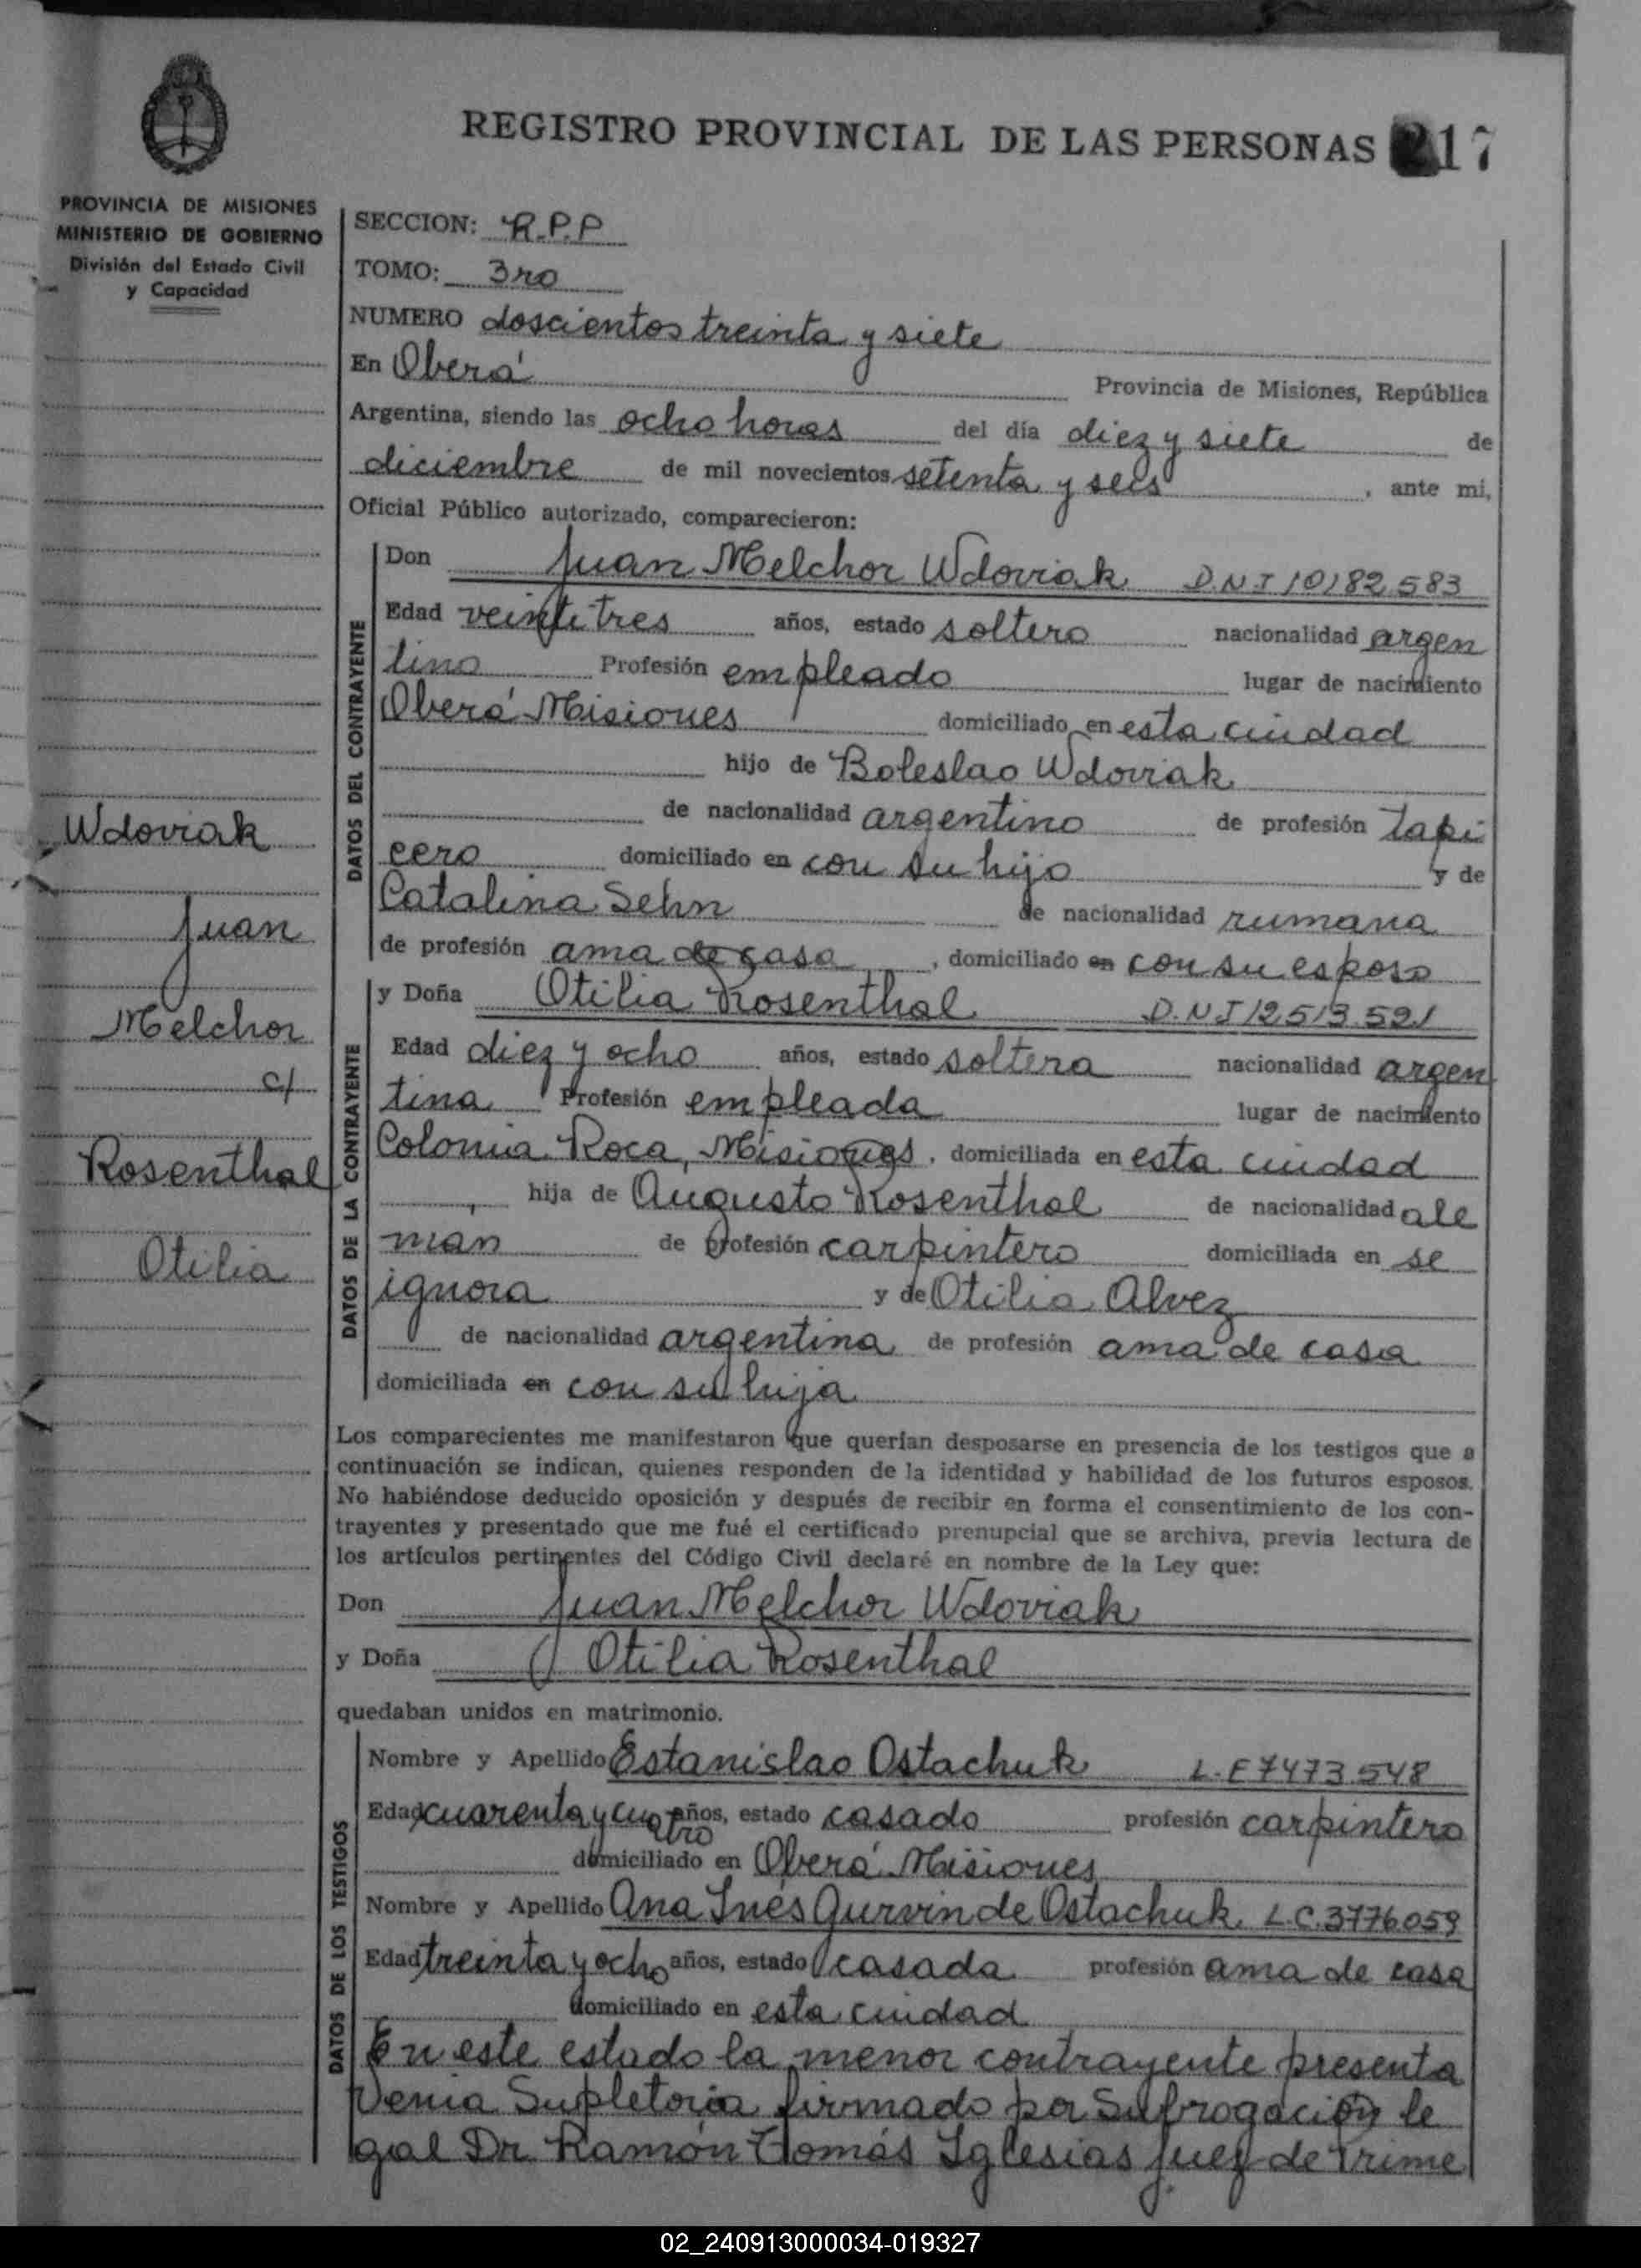 REGISTRO PROVINCIAL DE LAS PERSONAS 217
PROVINCIA DE MISIONES
MINISTERIO DE GOBIERNO
División del Estado Civil
y Capacidad
SECCION: R.P.P
TOMO: 3ro
NUMERO doscientos treinta y siete
En Oberá Provincia de Misiones, República
Argentina, siendo las ocho horas del día diez y siete de
diciembre de mil novecientos setenta y seis, ante mi,
Oficial Público autorizado, comparecieron:
DATOS DEL CONTRAYENTE
Don Juan Melchor Wdoviak D.N.I 10182.583
Edad veintitres años, estado soltero nacionalidad argen
tino Profesión empleado lugar de nacimiento
Oberá Misiones domiciliado en esta ciudad
hijo de Boleslao Wdoviak
de nacionalidad argentino de profesión tapi
cero domiciliado en con su hijo y de
Catalina Sehn de nacionalidad rumana
de profesión ama de casa, domiciliado en con su esposo
DATOS DE LA CONTRAYENTE
y Doña Otilia Rosenthal D.N.I 12513.521
Edad diez y ocho años, estado soltera nacionalidad argen
tina Profesión empleada lugar de nacimiento
Colonia Roca, Misiones, domiciliada en esta ciudad
hija de Augusto Rosenthal de nacionalidad ale
man de profesión carpintero domiciliada en se
ignora y de Otilia Alvez
de nacionalidad argentina de profesión ama de casa
domiciliada en con su hija
Wdoviak
Juan
Melchor
c/
Rosenthal
Otilia
Los comparecientes me manifestaron que querían desposarse en presencia de los testigos que a
continuación se indican, quienes responden de la identidad y habilidad de los futuros esposos.
No habiéndose deducido oposición y después de recibir en forma el consentimiento de los con-
trayentes y presentado que me fué el certificado prenupcial que se archiva, previa lectura de
los artículos pertinentes del Código Civil declaré en nombre de la Ley que:
Don Juan Melchor Wdoviak
y Doña Otilia Rosenthal
quedaban unidos en matrimonio.
DATOS DE LOS TESTIGOS
Nombre y Apellido Estanislao Ostachuk L.E 7473.548
Edad cuarenta y cuatro años, estado casado profesión carpintero
domiciliado en Oberá Misiones
Nombre y Apellido Ana Inés Gurvin de Ostachuk L.C. 3776.059
Edad treinta y ocho años, estado casada profesión ama de casa
domiciliado en esta ciudad
En este estado la menor contrayente presenta
Venia Supletoria firmado por Subrogación le
gal Dr. Ramón Tomás Iglesias juez de Prime
02_240913000034-019327